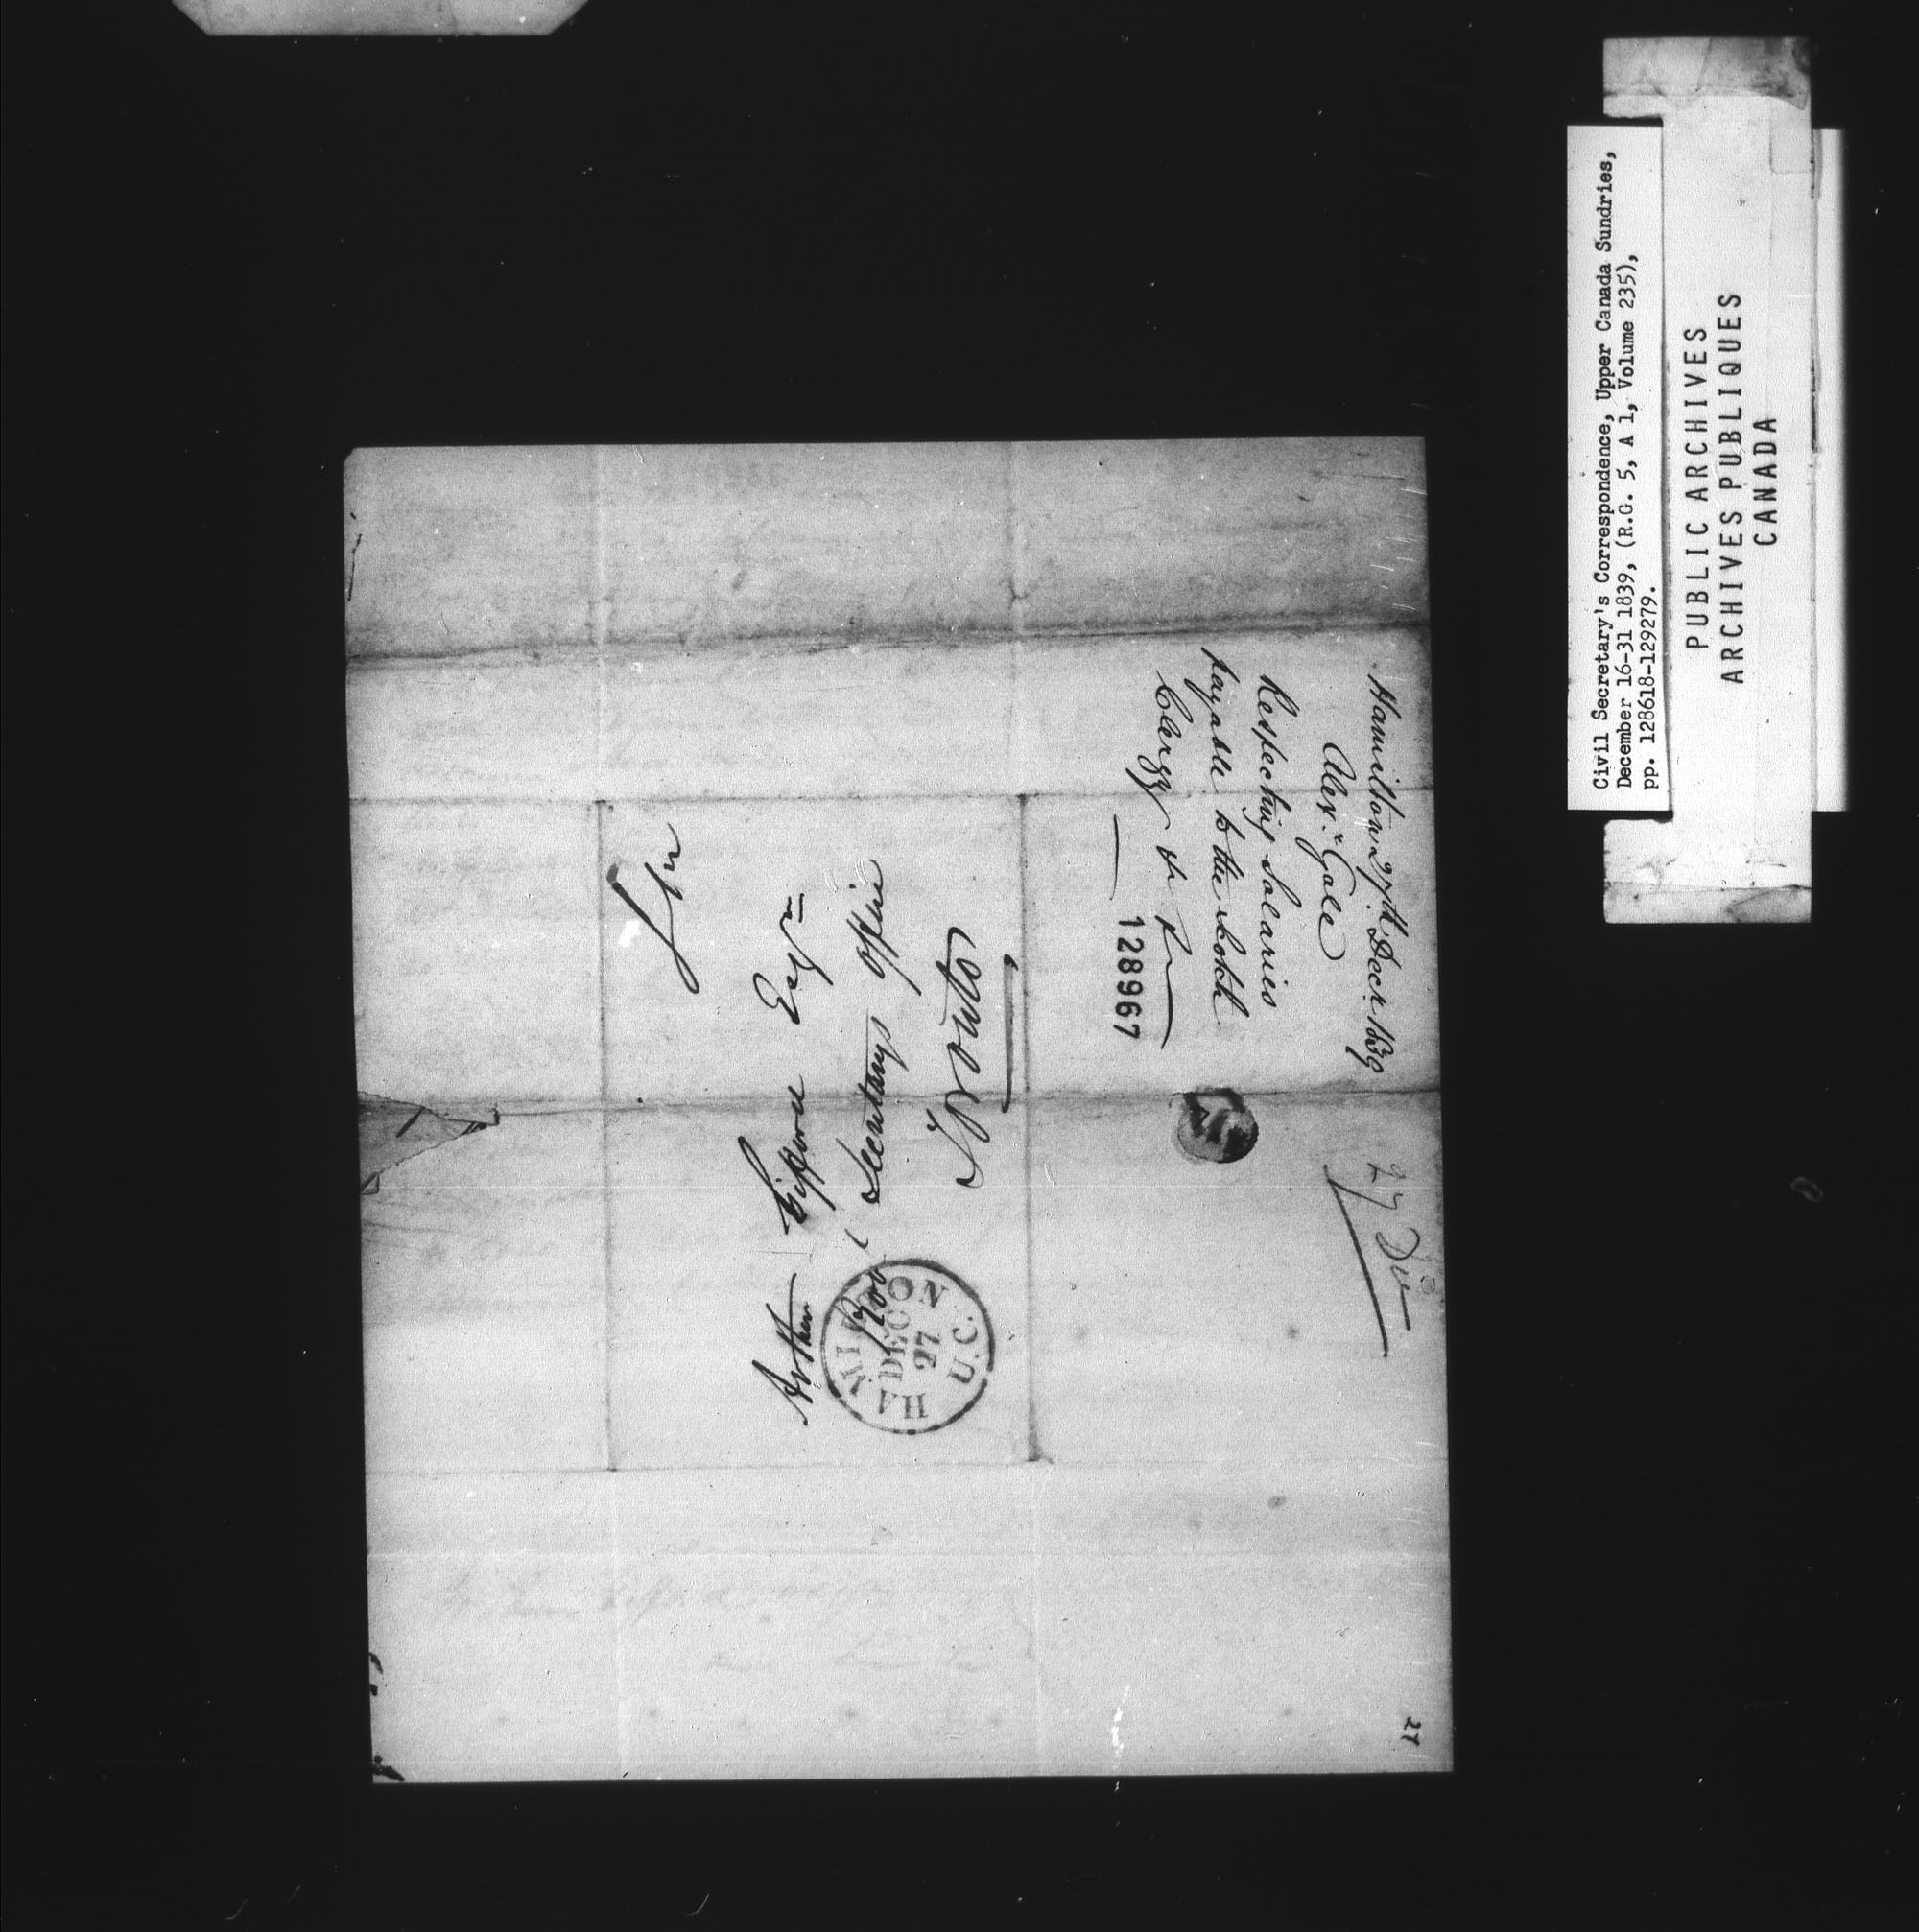 Civil Secretary's Correspondence, Upper Canada Sundries,
December 16-31 1839, (R.G. 5, A 1, Volume 235),
pp. 128618-129279.
PUBLIC ARCHIVES
ARCHIVES PUBLIQUES
CANADA
Hamilton 27th Decr. 1839
Alexr. Gale
Respecting Salaries
payable to the Scotch
Clergy &c &c
128967
27 Dec
Arthur Gifford Esqr
Secretarys Office
Toronto
HAMILTON
DEC
27
U.C.
27